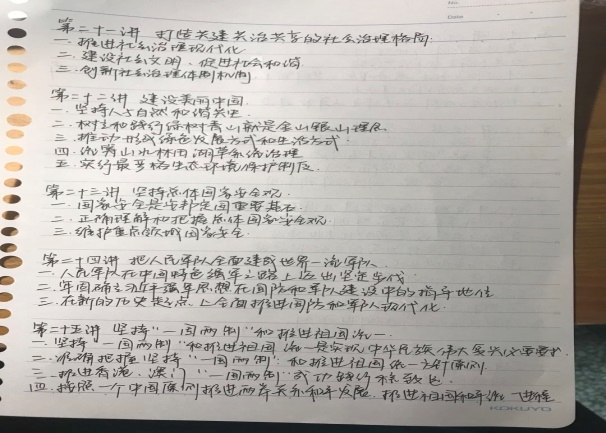 No:
Date
第二十一讲 打造共建共治共享的社会治理格局
一. 推进社会治理现代化
二. 建设社会文明、促进社会和谐
三. 创新社会治理体制机制
第二十二讲 建设美丽中国.
一. 坚持人与自然和谐共生
二. 树立和践行绿水青山就是金山银山理念
三. 推动形成绿色发展方式和生活方式
四. 统筹山水林田湖草系统治理
五. 实行最严格生态环境保护制度
第二十三讲 坚持总体国家安全观.
一. 国家安全是安邦定国重要基石
二. 正确理解和把握总体国家安全观
三. 维护重点领域国家安全
第二十四讲 把人民军队全面建成世界一流军队
一. 人民军队在中国特色强军之路上迈出坚定步伐
二. 牢固确立习近平强军思想在国防和军队建设中的指导地位
三. 在新的历史起点上全面推进国防和军队现代化.
第二十五讲 坚持“一国两制”和推进祖国统一.
一. 坚持“一国两制”和推进祖国统一是实现中华民族伟大复兴必然要求.
二. 准确把握坚持“一国两制”和推进祖国统一方针原则
三. 推进香港、澳门“一国两制”成功实践行稳致远
四. 按照一个中国原则推进两岸关系和平发展 推进祖国和平统一进程
KOKUYO